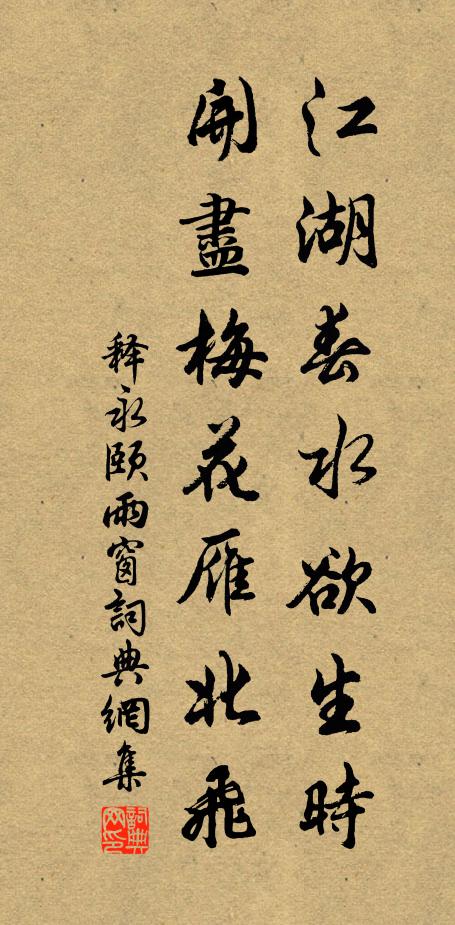 江湖春水欲生時
開盡梅花雁北飛
释永頤雨窗詞典網集
詞典網印